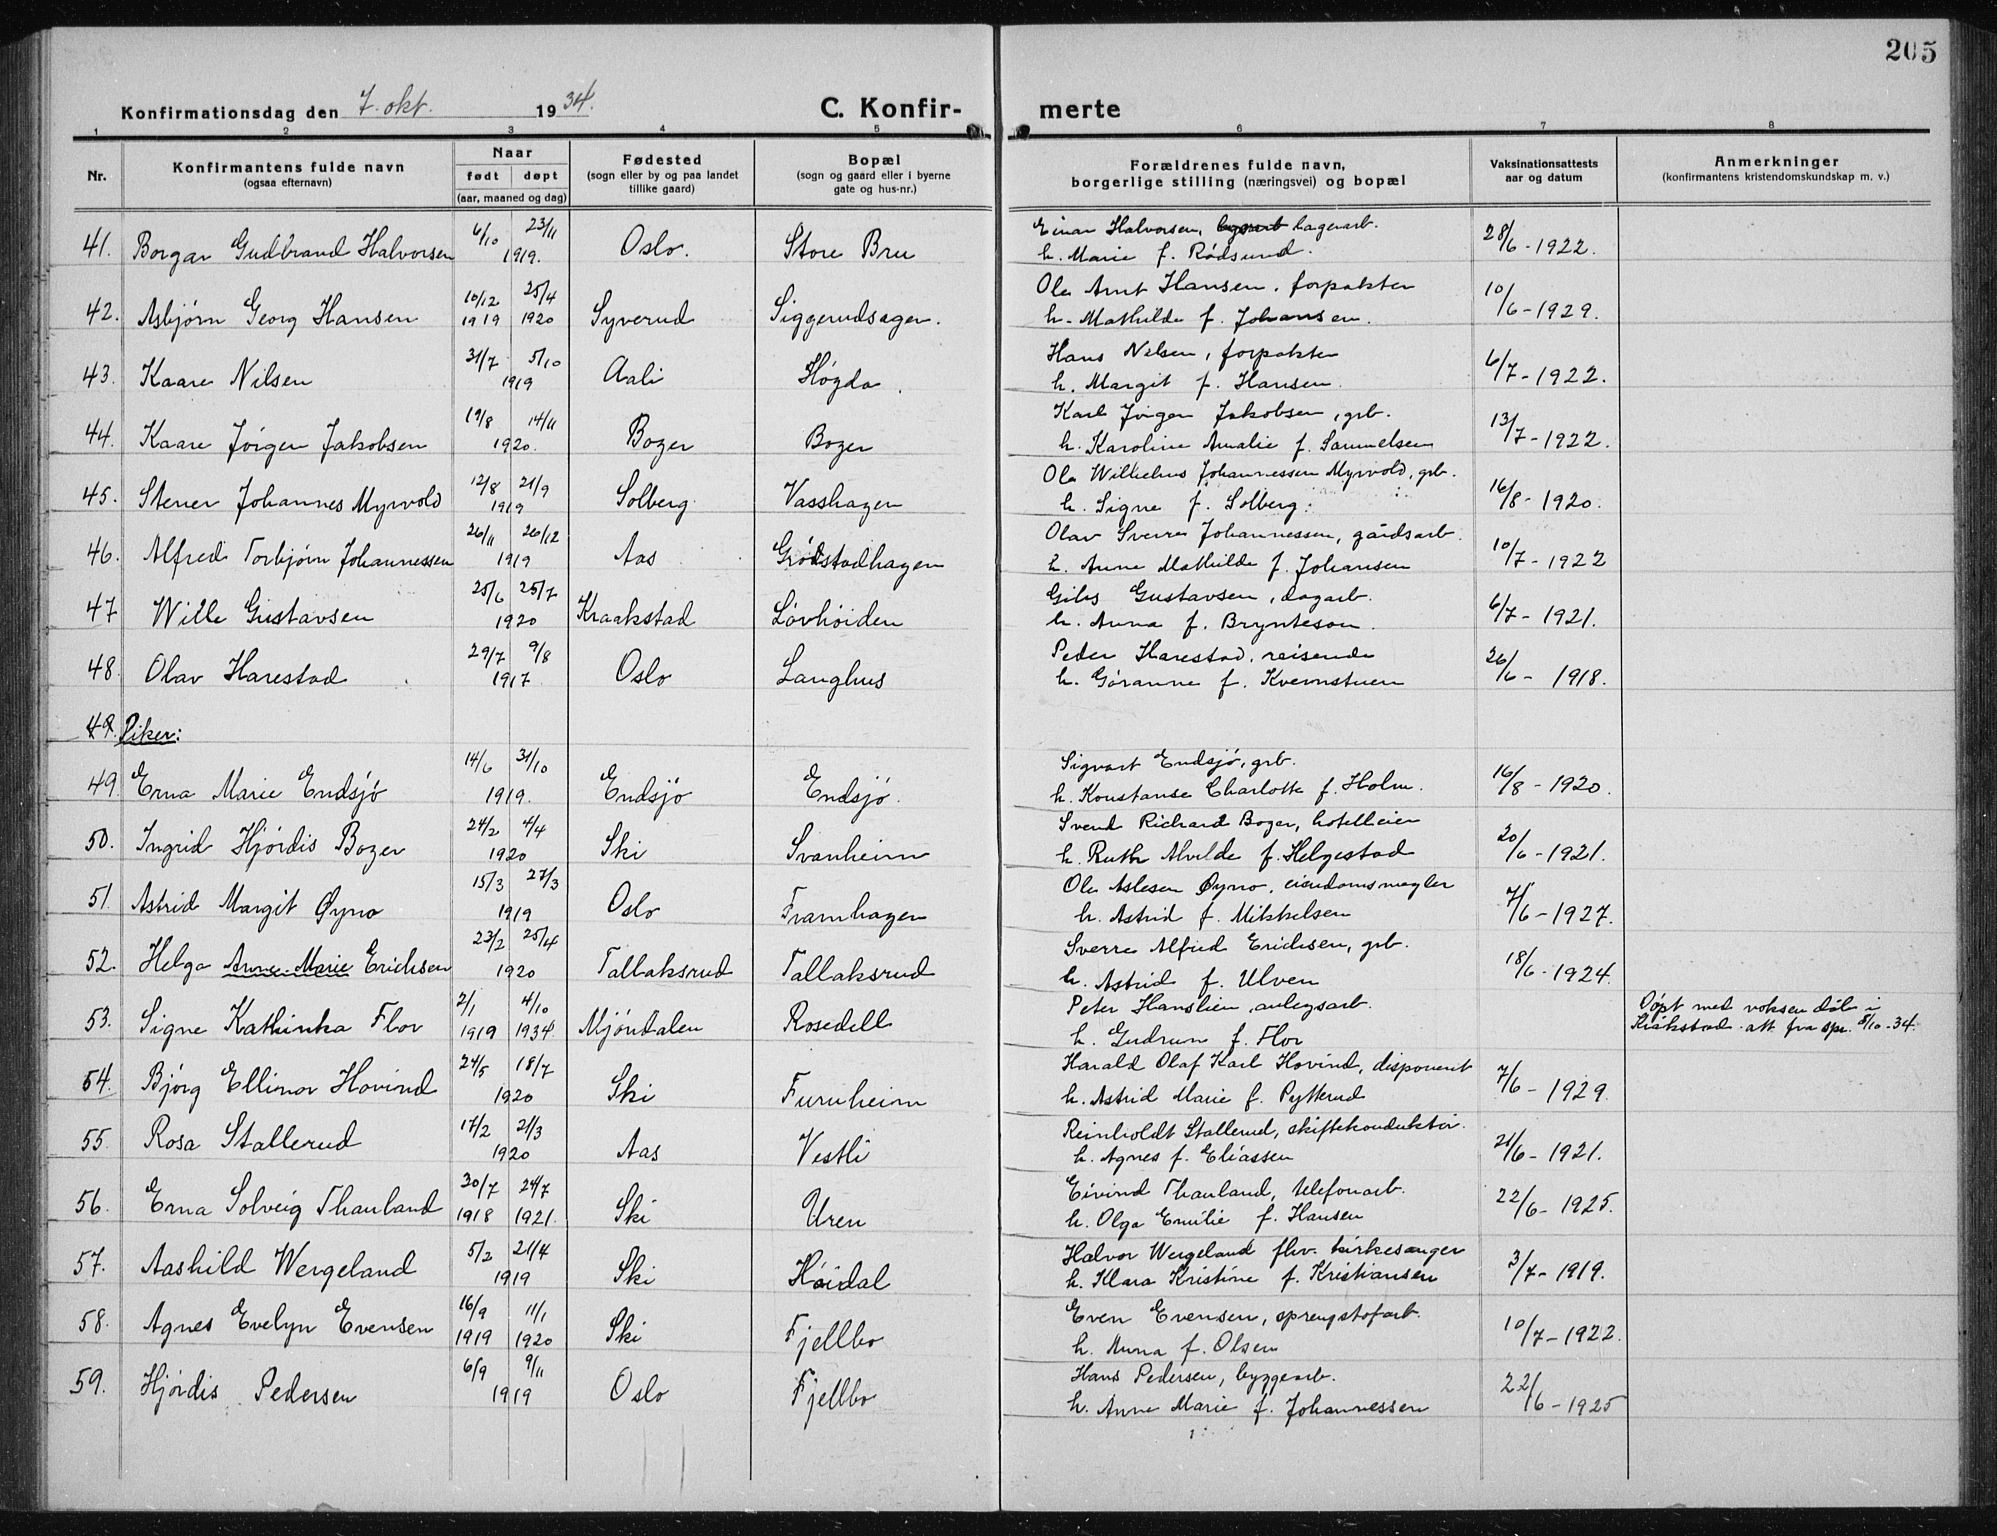 205
Konfirmationsdag den 7. okt. 1934.
C. Konfir-
merte
1 2 3 4 5 6 7 8
Nr.
Konfirmantens fulde navn
(ogsaa efternavn)
Naar
født døpt
(aar, maaned og dag)
Fødested
(sogn eller by og paa landet
tillike gaard)
Bopæl
(sogn og gaard eller i byerne
gate og hus-nr.)
Forældrenes fulde navn,
borgerlige stilling (næringsvei) og bopæl
Vaksinationsattests
aar og datum
Anmerkninger
(konfirmantens kristendomskundskap m. v.)
41. Borgar Gudbrand Halvorsen 6/10 23/11 1919. Oslo. Store Bru Einar Halvorsen, lagerarb.
h. Marie f. Rødsund. 28/6 - 1922.
42. Asbjørn Georg Hansen 10/12 1919 25/4 1920 Syverud Siggerudsagen. Ole Arnt Hansen, forpakter
h. Mathilde f. Johansen. 10/6 - 1929.
43. Kaare Nilsen 31/7 5/10 1919 Aali Høgda. Hans Nilsen, forpakter
h. Margit f. Hansen. 6/7 - 1922.
44. Kaare Jörgen Jakobsen 19/8 14/11 1920. Bozer Bozer Karl Jörgen Jakobsen, grb.
h. Karoline Amalie f. Samuelsen 13/7 - 1922.
45. Stener Johannes Myrvold 12/8 21/9 1919 Solberg Vasshagen Ole Wilhelms Johannessen Myrvold, grb.
h. Signe f. Solberg. 16/8 - 1920.
46. Alfred Torbjørn Johannessen 26/11 26/12 1919 Aas Grödstadhagen Olav Sverre Johannessen, gårdsarb.
h. Anne Mathilde f. Johansen 10/7 - 1922
47 Wille Gustavsen 25/6 25/7 1920 Kraakstad Lövhöiden Gustavsen, dagarb.
h. Anna f. Brynteson. 6/7 - 1921.
48. Olav Harestad 29/7 9/8 1917 Oslo Langhus Peder Harestad, reisende
h. Göranne f. Kvernstuen 26/6 - 1918.
49. Piker:
49. Erna Marie Endsjö 14/6 31/10 1919. Endsjö Endsjö. Sigvart Endsjö, grb.
h. Konstanse Charlotte f. Holm. 16/8 - 1920.
50. Ingrid Hjördis Bozer 24/2 4/4 1920 Ski Svanheim Svend Richard Bozer, hotelleier
h. Ruth Alvilde f. Helgestad 20/6 - 1921.
51. Astrid Margit Øyno 15/3 27/3 1919 Oslo Framhagen Ole Aslesen Øyno, eiendomsmegler
h. Astrid f. Mikkelsen 7/6 - 1927.
52. Helga Anne-Marie Erichsen 23/2 25/4 1920 Tallaksrud Tallaksrud Sverre Alfred Erichsen, grb.
h. Astrid f. Ulven 18/6 - 1924.
53. Signe Kathinka Flor 2/1 1919 4/10 1934. Mjöndalen Rosedell Peter Hanslien, anlegsarb.
h. Gudrun f. Flor
Döpt med voksen dåb i
Kråkstad. att. fra spr. 5/10-34.
54. Björg Ellinor Hovind 24/5 18/7 1920 Ski Furuheim Harald Olaf Karl Hovind, disponent
h. Astrid Marie f. Pytterud 7/6 - 1929.
55. Rosa Stallerud 17/2 21/3 1920 Aas Vestli Reinholdt Stallerud, skiftekonduktör.
h. Agnes f. Eliassen 21/6 - 1921.
56. Erna Solveig Thauland 30/7 1918 24/7 1921. Ski Uren Eivind Thauland, telefonarb.
h. Olga Emilie f. Hansen 22/6 - 1925.
57. Aashild Wergeland 5/2 21/4 1919 Ski Höidal Halvor Wergeland fhv. kirkesanger
h. Klara Kristine f. Kristiansen 3/7 - 1919.
58. Agnes Evelyn Evensen 16/9 1919 11/1 1920 Ski Fjellbo Even Evensen, sprengstofarb.
h. Anna f. Olsen 10/7 - 1922.
59. Hjördis Pedersen 6/9 9/11 1919 Oslo Fjellbo Hans Pedersen, byggearb.
h. Anne Marie f. Johannessen 22/6 - 1925